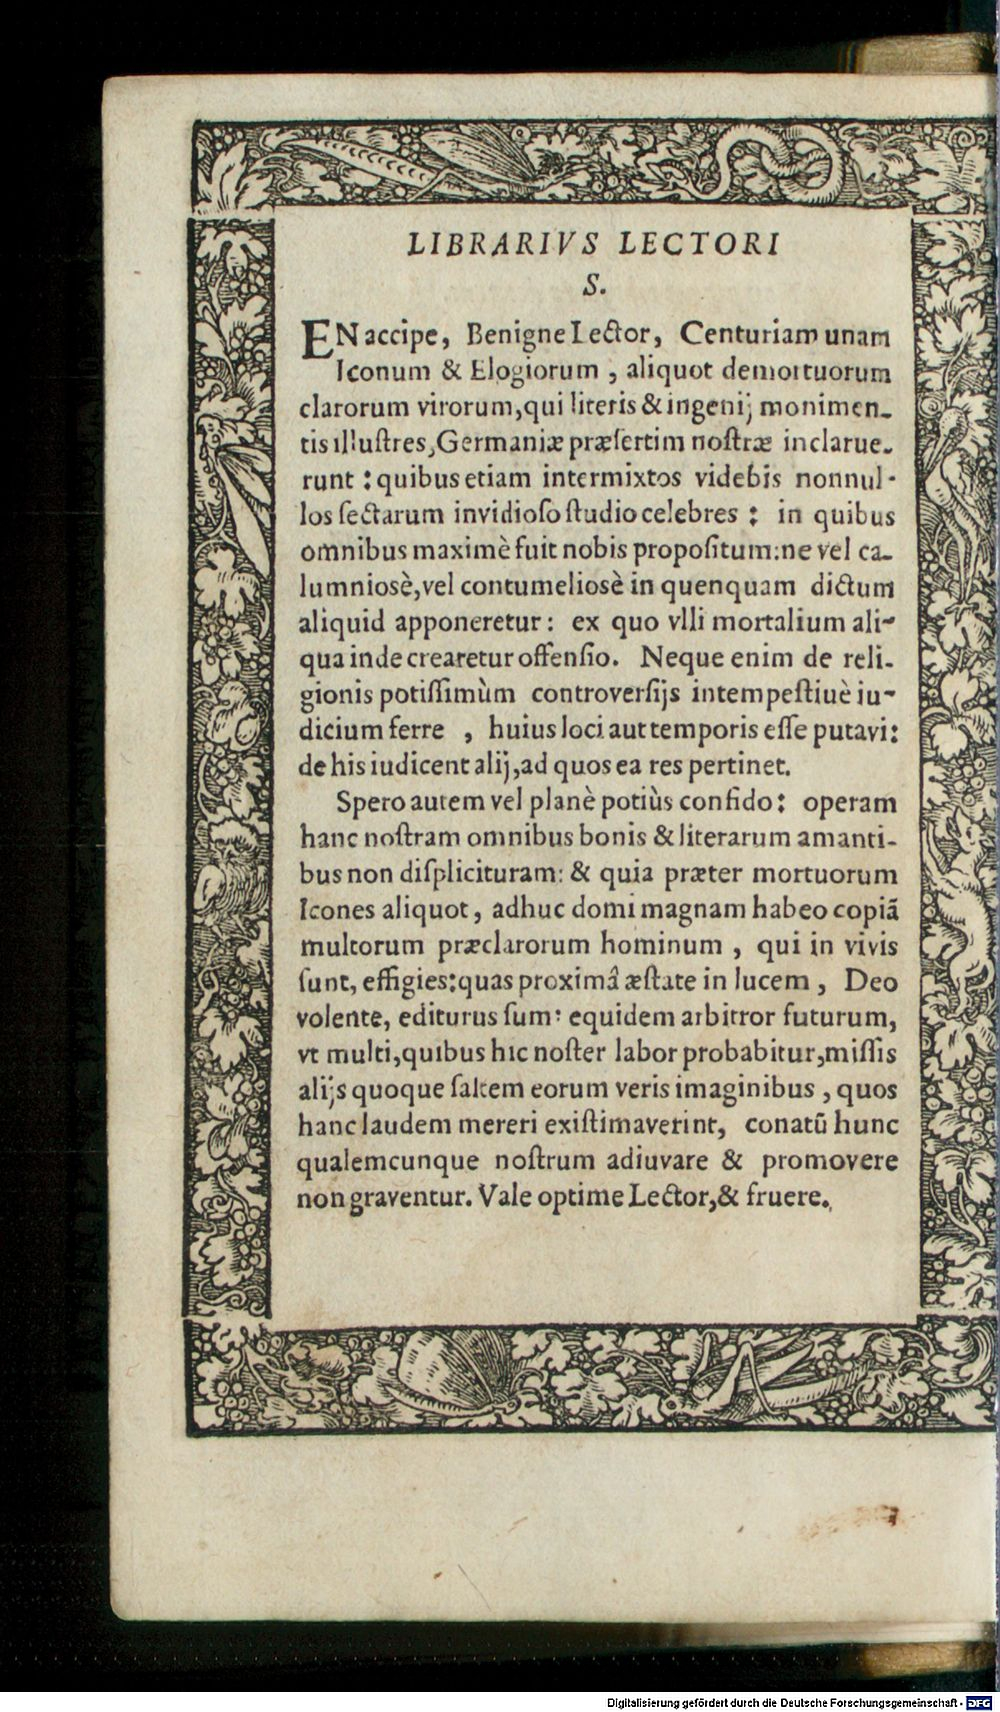 LIBRARIVS LECTORI
S.
EN accipe, Benigne Lector, Centuriam unam
Iconum & Elogiorum, aliquot demortuorum
clarorum virorum, qui literis & ingenij monimen-
tis illuſtres, Germaniæ præſertim noſtræ inclarue-
runt: quibus etiam intermixtos videbis nonnul-
los ſectarum invidioſo ſtudio celebres: in quibus
omnibus maximè fuit nobis propoſitum: ne vel ca-
lumniosè, vel contumeliosè in quenquam dictum
aliquid apponeretur: ex quo vlli mortalium ali-
qua inde crearetur offenſio. Neque enim de reli-
gionis potiſſimùm controverſijs intempeſtiuè iu-
dicium ferre, huius loci aut temporis eſſe putavi:
de his iudicent alij, ad quos ea res pertinet.
Spero autem vel planè potiùs confido: operam
hanc noſtram omnibus bonis & literarum amanti-
bus non diſplicituram: & quia præter mortuorum
Icones aliquot, adhuc domi magnam habeo copiã
multorum præclarorum hominum, qui in vivis
ſunt, effigies: quas proximâ æſtate in lucem, Deo
volente, editurus ſum: equidem arbitror futurum,
vt multi, quibus hic noſter labor probabitur, miſſis
alijs quoque ſaltem eorum veris imaginibus, quos
hanc laudem mereri exiſtimaverint, conatũ hunc
qualemcunque noſtrum adiuvare & promovere
non graventur. Vale optime Lector, & fruere.
Digitalisierung gefördert durch die Deutsche Forschungsgemeinschaft - DFG